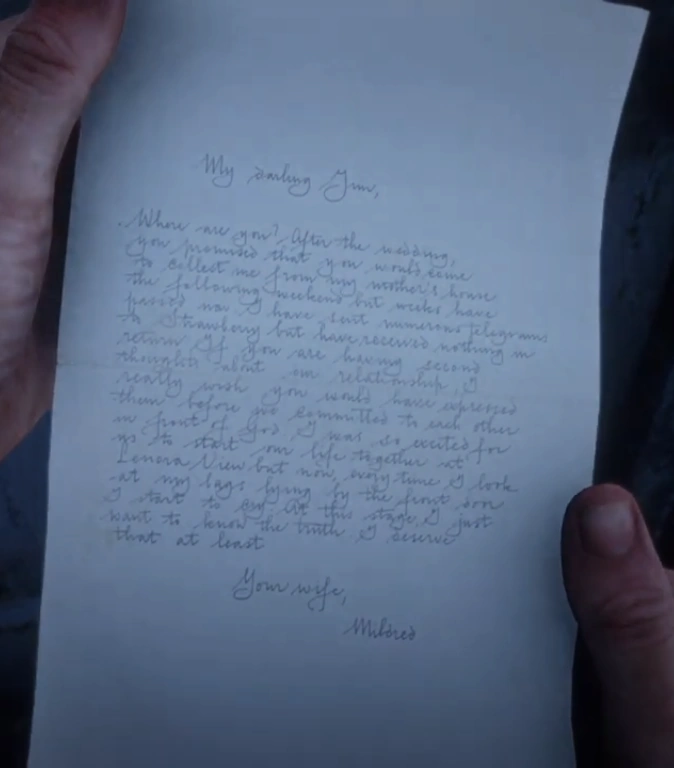 My darling Jim,
Where are you? After the wedding,
you promised that you would come
to collect me from my mother's house
the following weekend but weeks have
passed now. I have sent numerous telegrams
to Strawberry but have received nothing in
return. If you are having second
thoughts about our relationship, I
really wish you would have expressed
them before we committed to each other
in front of God. I was so excited for
us to start our life together at
Lenora View but now, every time I look
at my bags lying by the front door
I start to cry. At this stage, I just
want to know the truth. I deserve
that at least
Your wife,
Mildred